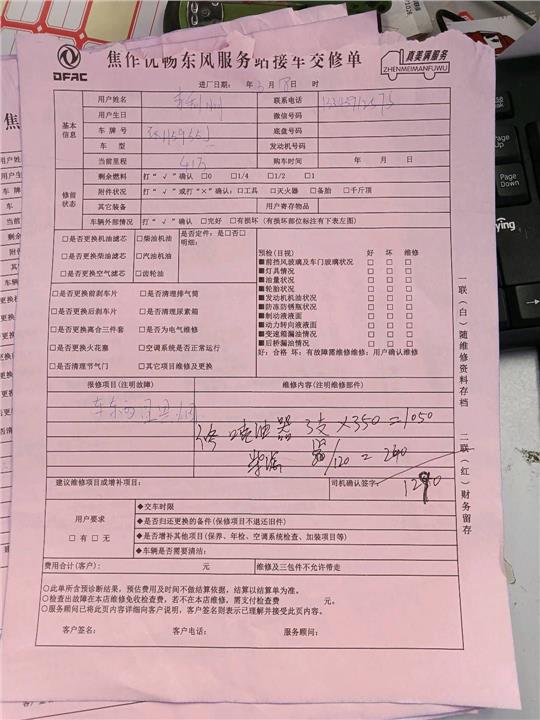 DFAC
焦作优畅东风服务站接车交修单
真美满服务
ZHENMEIMANFUWU
进厂日期： 年 5 月 日 时
基本信息
用户姓名 联系电话
用户生日 微信号码
车 牌 号 底盘号码
车 型 发动机号码
当前里程 购车时间 年 月 日
修前状态
剩余燃料 打“√”确认 □0 □1/4 □1/2 □1
附件状况 打“√”或打“×”确认：□工具 □灭火器 □备胎 □千斤顶
其它装备 用户寄存物品
车辆外部情况 打“√”确认 □完好 □有损坏（有损坏部位标注有下表左图）
□是否更换机油滤芯 □柴油机油 是否定件：是□否□
□是否更换柴油滤芯 □汽油机油 明细：
□是否更换空气滤芯 □齿轮油
□是否更换前刹车片 □是否清理排气筒
□是否更换后刹车片 □是否清理尿素箱
□是否更换离合三件套 □是否为电气维修
□是否更换火花塞 □空调系统是否正常运行
□是否清理节气门 □其它项目维修及更换
预检(目视) 好 坏 维修
■前挡风玻璃及车门玻璃状况 □ □ □
■灯具情况 □ □ □
■油量状况 □ □ □
■轮胎状况 □ □ □
■发动机机油状况 □ □ □
■防冻防锈瓶状况 □ □ □
■制动液液面 □ □ □
■动力转向液液面 □ □ □
■变速箱漏油情况 □ □ □
■后桥漏油情况 □ □ □
好：合格 坏：有故障需维修维修：用户确认维修
报修项目(注明故障) 维修内容(注明维修部件)
喷油器 3支 ×350 =1050
/120 = 240
建议维修项目或增补项目： 司机确认签字：
1290
用户要求
□ 有 □ 无
◆交车时限
◆是否归还更换的备件(保修项目不退还旧件)
◆是否增补其他项目(保养、年检、空调系统检查、加装项目等)
◆车辆是否需要清洁：
费用合计(客户)： 元 维修及三包件不允许带走
○此单所含预诊断结果，预估费用及时间不做结算依据，结算以结算单为准。
○检查出故障在本店维修免收检查费，若不在本店维修，需支付检查费 元。
○服务顾问已将此页内容详细向客户说明，客户签名则表示已理解并接受此页内容。
客户签名： 客户电话： 服务顾问：
一联（白）随维修资料存档
二联（红）财务留存
Page Up
Page Down